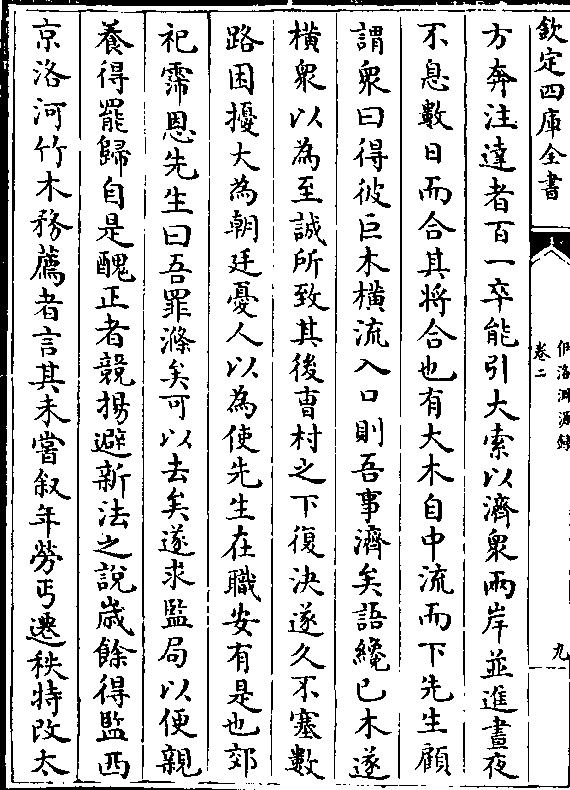 欽定四庫全書
伊洛淵源録
卷二
九
方奔注達者百一卒能引大索以濟衆兩岸並進晝夜
不息數日而合其將合也有大木自中流而下先生顧
謂衆曰得彼巨木橫流入口則吾事濟矣語纔已木遂
橫衆以為至誠所致其後曹村之下復決遂久不塞數
路困擾大為朝廷憂人以為使先生在職安有是也郊
祀霈恩先生曰吾罪滌矣可以去矣遂求監局以便親
養得罷歸自是醜正者競揚避新法之說歳餘得監西
京洛河竹木務薦者言其未嘗叙年勞丐遷秩特改太